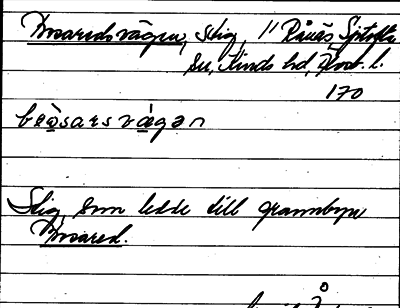 Bosaredsvägen, stig, 11 Rånäs Sjötofta
sn, Kinds hd, Älvsb. l.
170
beòsarsvàgən
Stig som ledde till grannbyn
Bosared.